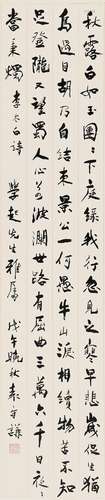 秋露白如玉團團下庭綠我行忽見之寒早悲歲促人生
鳥過目胡乃自結束景公一何愚牛山淚相續物苦不知
足登隴又望蜀人心若波瀾世路有屈曲三萬六千日夜夜
當秉燭 李太白詩 學起先生雅屬 戊午晚秋袁守謙